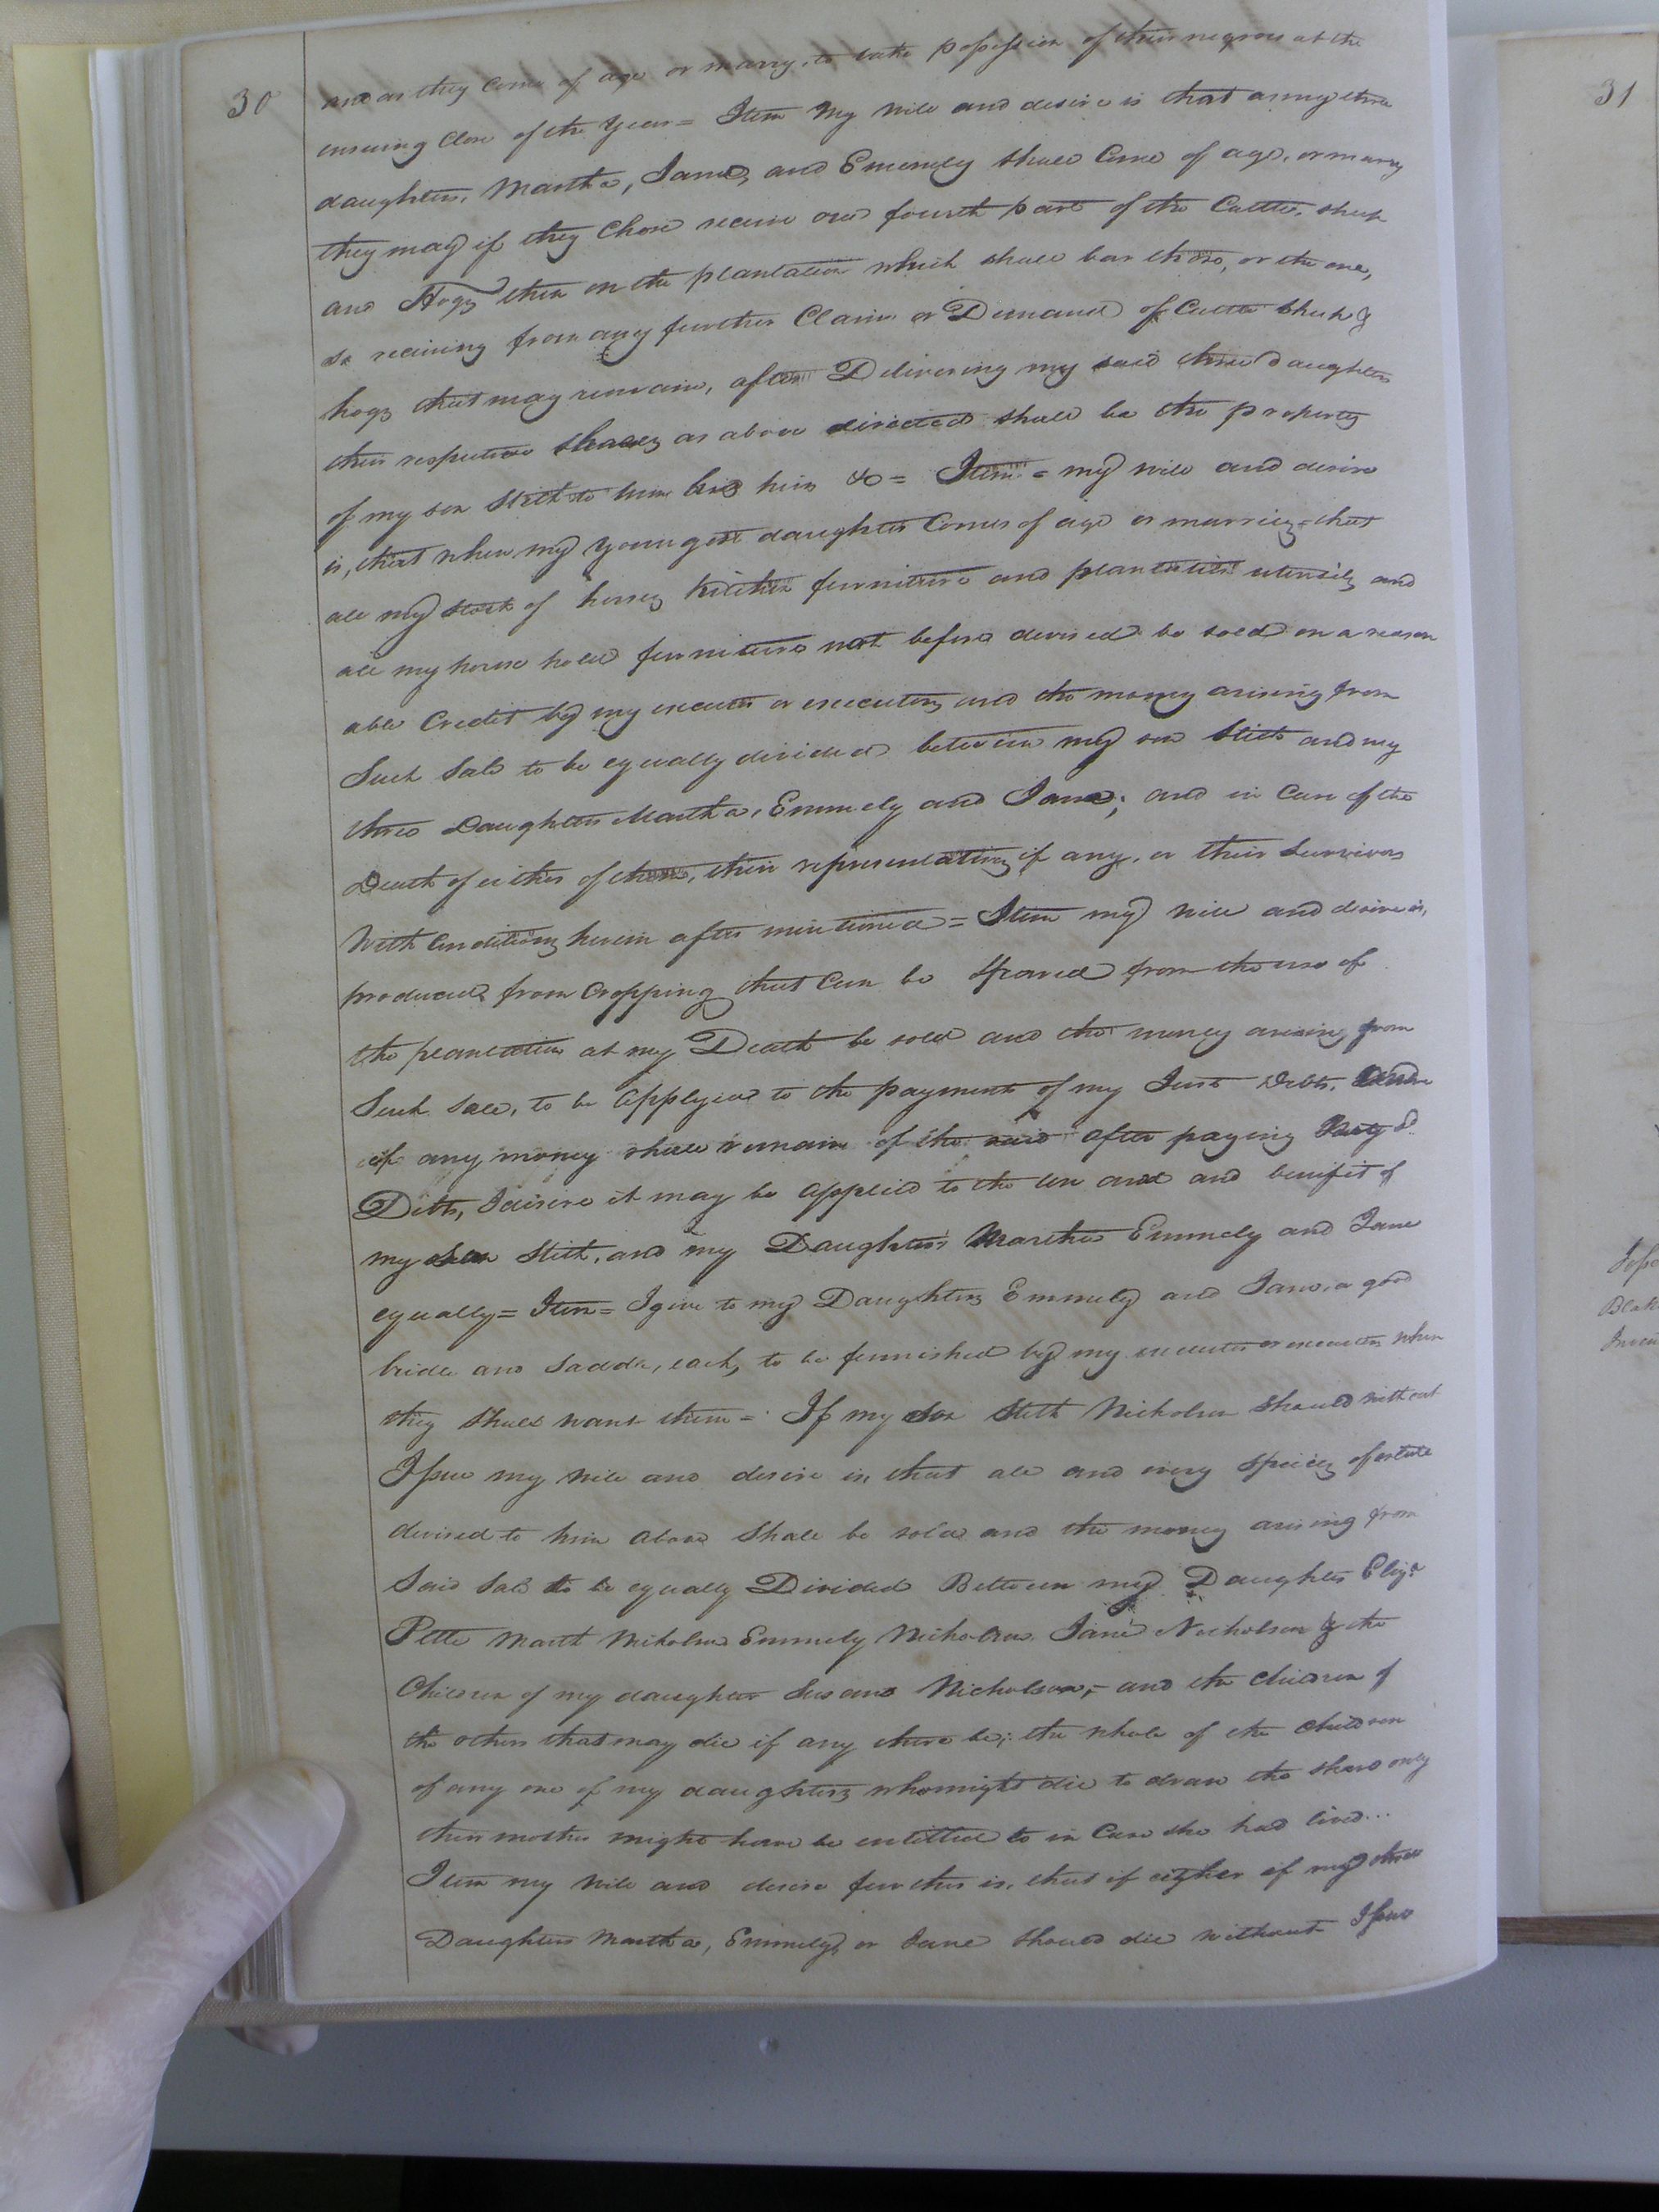 30
and as they come of age or marry, to take possession of their negroes at the
ensuing close of the year = Item My will and desire is that as my three
daughters, Martha, Jane, and Emmely shall come of age, or marry
they may if they chose receive one fourth part of the Cattle, sheep
and Hogs then on the plantation which shall bar those, or the one,
so receiving from any further Claim or Demand of Cattle sheep &
hogs that may remain, after Delivering my said three daughters
their respective shares as above directed shall be the property
of my son Stith to him his heirs &c = Item = my will and desire
is, that when my youngest daughter Comes of age or marries that
all my stock of horses Kitchen furniture and plantation utensils and
all my house hold furniture not before devised be sold on a reason
able Credit by my executor or executors and the money arising from
Such Sale to be equally divided between my son Stith and my
three Daughters Martha, Emmely and Jane; and in Case of the
Death of either of them, their representatives if any, or their Survivors
With Conditions herein after mentioned = Item my will and desire is,
produced from Cropping that Can be Spared from the use of
the plantation at my Death be sold and the money arising from
Such Sale, to be applyed to the payment of my Just Debts, and
if any money shall remain of the said after paying
Debts, I desire it may be applied to the use and and benifit of
my son Stith, and my Daughters Martha Emmely and Jane
equally = Item = I give to my Daughters Emmely and Jane, a good
bridle and Saddle, each, to be furnished by my executor or executors when
they shall want them = If my Son Stith Nicholson should without
Issue my will and desire is, that all and every species of estate
devised to him above Shall be sold and the money arising from
Said Sale to be equally Divided Between my Daughter Eliza
Pette Marth Nicholson Emmely Nicholson Jane Nicholson & the
Children of my daughter Susana Nicholson, - and the children of
the others that may die if any there be; the whole of the children
of any one of my daughters who might die to draw the share only
their mother might have be entitled to in Case she had lived...
Item my will and desire further is, that if either of my three
Daughters Martha, Emmely, or Jane should die without Issue
31
Blak